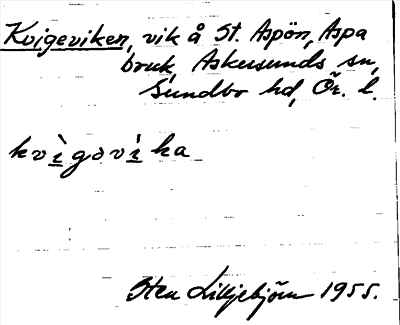 Kvigeviken, vik å St. Aspön, Aspa
bruk, Askersunds sn,
Sundbo hd, Ör. l.
kvìgəvìka
Sten Lilljebjörn 1955.